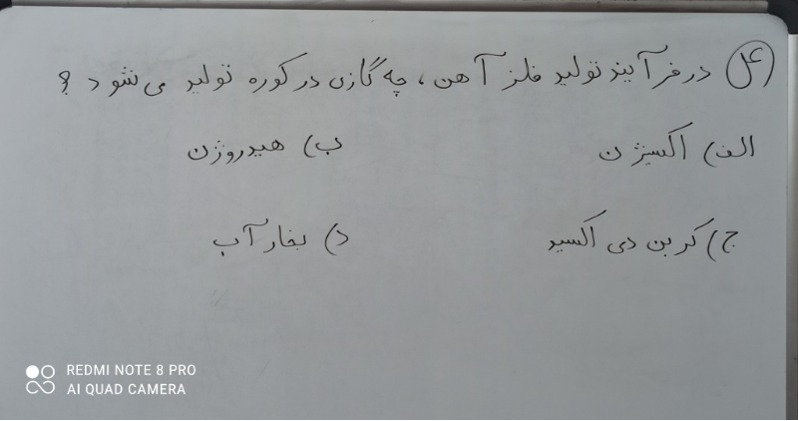 ۴) در فرآیند تولید فلز آهن، چه گازی در کوره تولید می شود؟
الف) اکسیژن ب) هیدروژن
ج) کربن دی اکسید د) بخار آب
REDMI NOTE 8 PRO
AI QUAD CAMERA